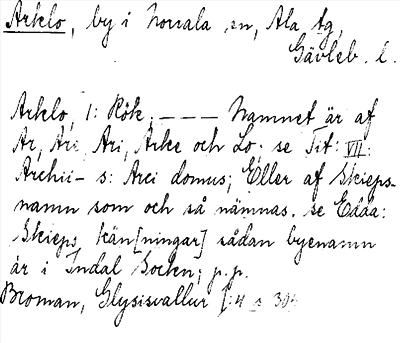 Arklo, by i Norrala sn, Ala tg,
Gävleb. l.
Arklo, 1: Rök. – – – Namnet är af
Ar, Ari, Ari, Arke och Lo. se Tit: VII:
Archii- s: Arci domus; Eller af Skieps-
namn som och så nämnas. se Edda:
Skieps kän[ningar] sådan byenamn
är i Indal Socken; p.p.
Broman, Glysisvallur